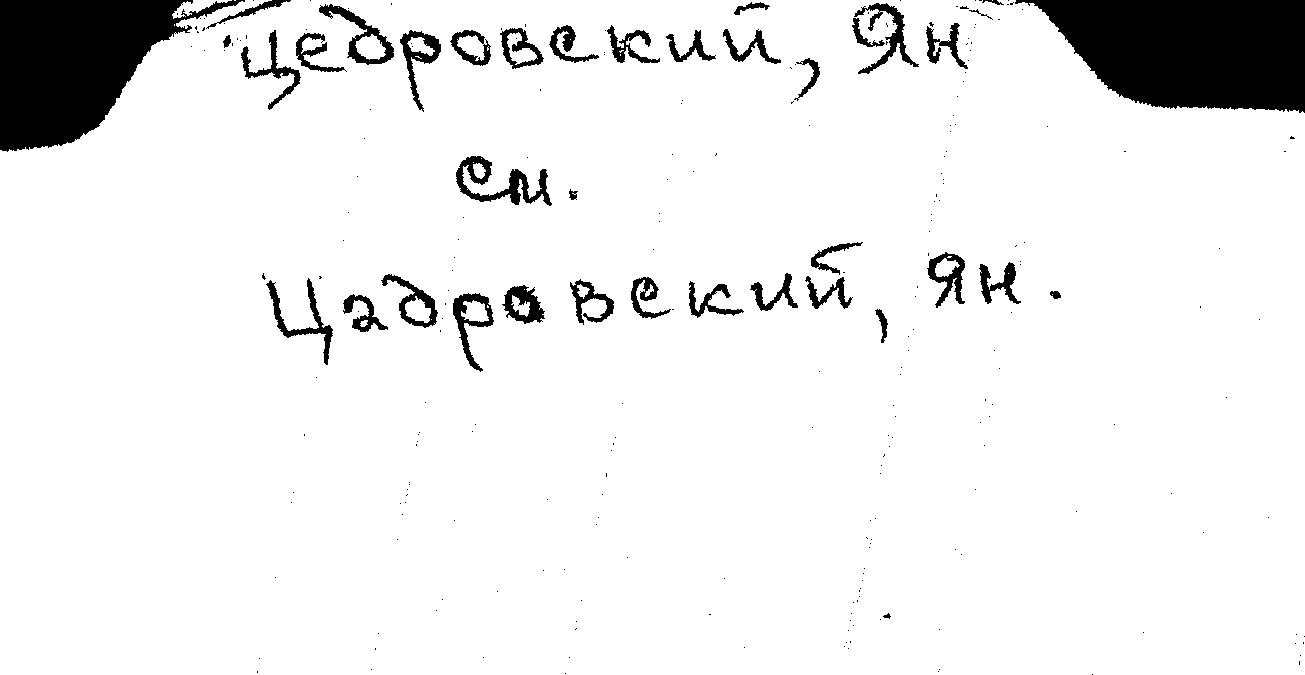 Цедровский, Ян
см.
Цадровский, Ян.